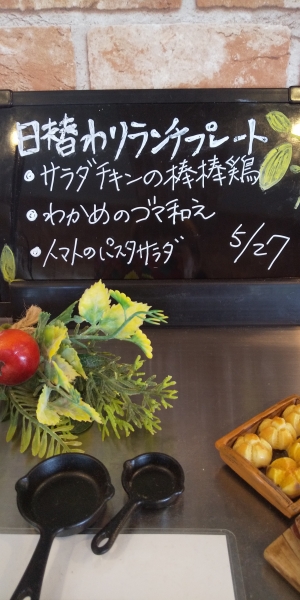 日替わりランチプレート
• サラダチキンの棒棒鶏
• わかめのゴマ和え
• トマトのパスタサラダ
5/27